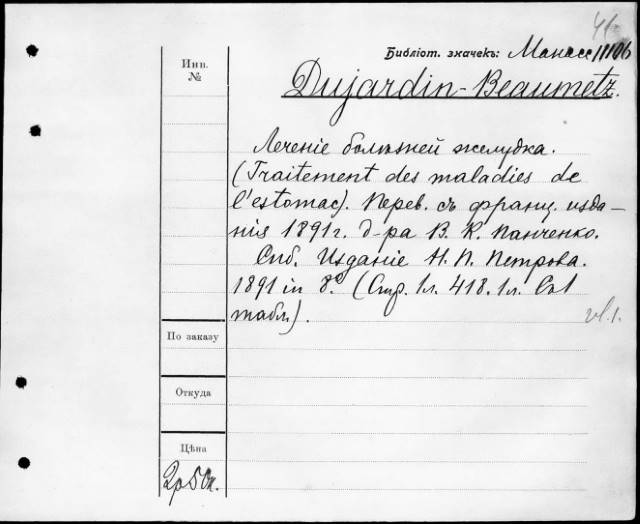 Библіот. значекъ: Манасс 11106
Инв.
№
Dujardin-Beaumetz.
Леченіе болѣзней желудка.
(Traitement des maladies de
l'estomac). Перев. съ франц. изда-
нія 1891 г. д-ра В. К. Панченко.
Спб. Изданіе Н. П. Петрова.
1891 in 8° (Стр. 1л. 418. 1л. Съ 1
табл.).
По заказу
Откуда
Цѣна
2р 50к.